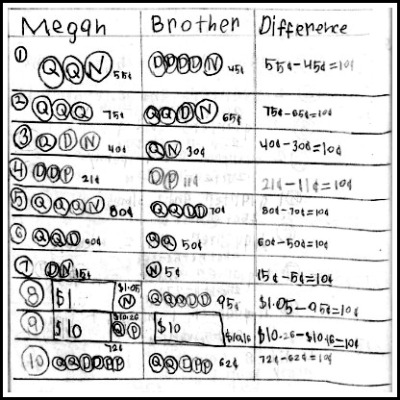 Megan Brother Difference
① Q Q N 55¢ D D D D N 45¢ 55¢-45¢=10¢
② Q Q Q 75¢ Q Q D N 65¢ 75¢-65¢=10¢
③ Q D N 40¢ Q N 30¢ 40¢-30¢=10¢
④ D D P 21¢ D P 11¢ 21¢-11¢=10¢
⑤ Q Q Q N 80¢ Q Q D D 70¢ 80¢-70¢=10¢
⑥ Q Q D 60¢ Q Q 50¢ 60¢-50¢=10¢
⑦ D N 15¢ N 5¢ 15¢-5¢=10¢
⑧ $1 $1.05 N Q Q D D D 95¢ $1.05-95¢=10¢
⑨ $10 $10.26 Q P $10 $10.16 $10.26-$10.16=10¢
⑩ Q Q D D P P 72¢ Q Q P P 62¢ 72¢-62¢=10¢